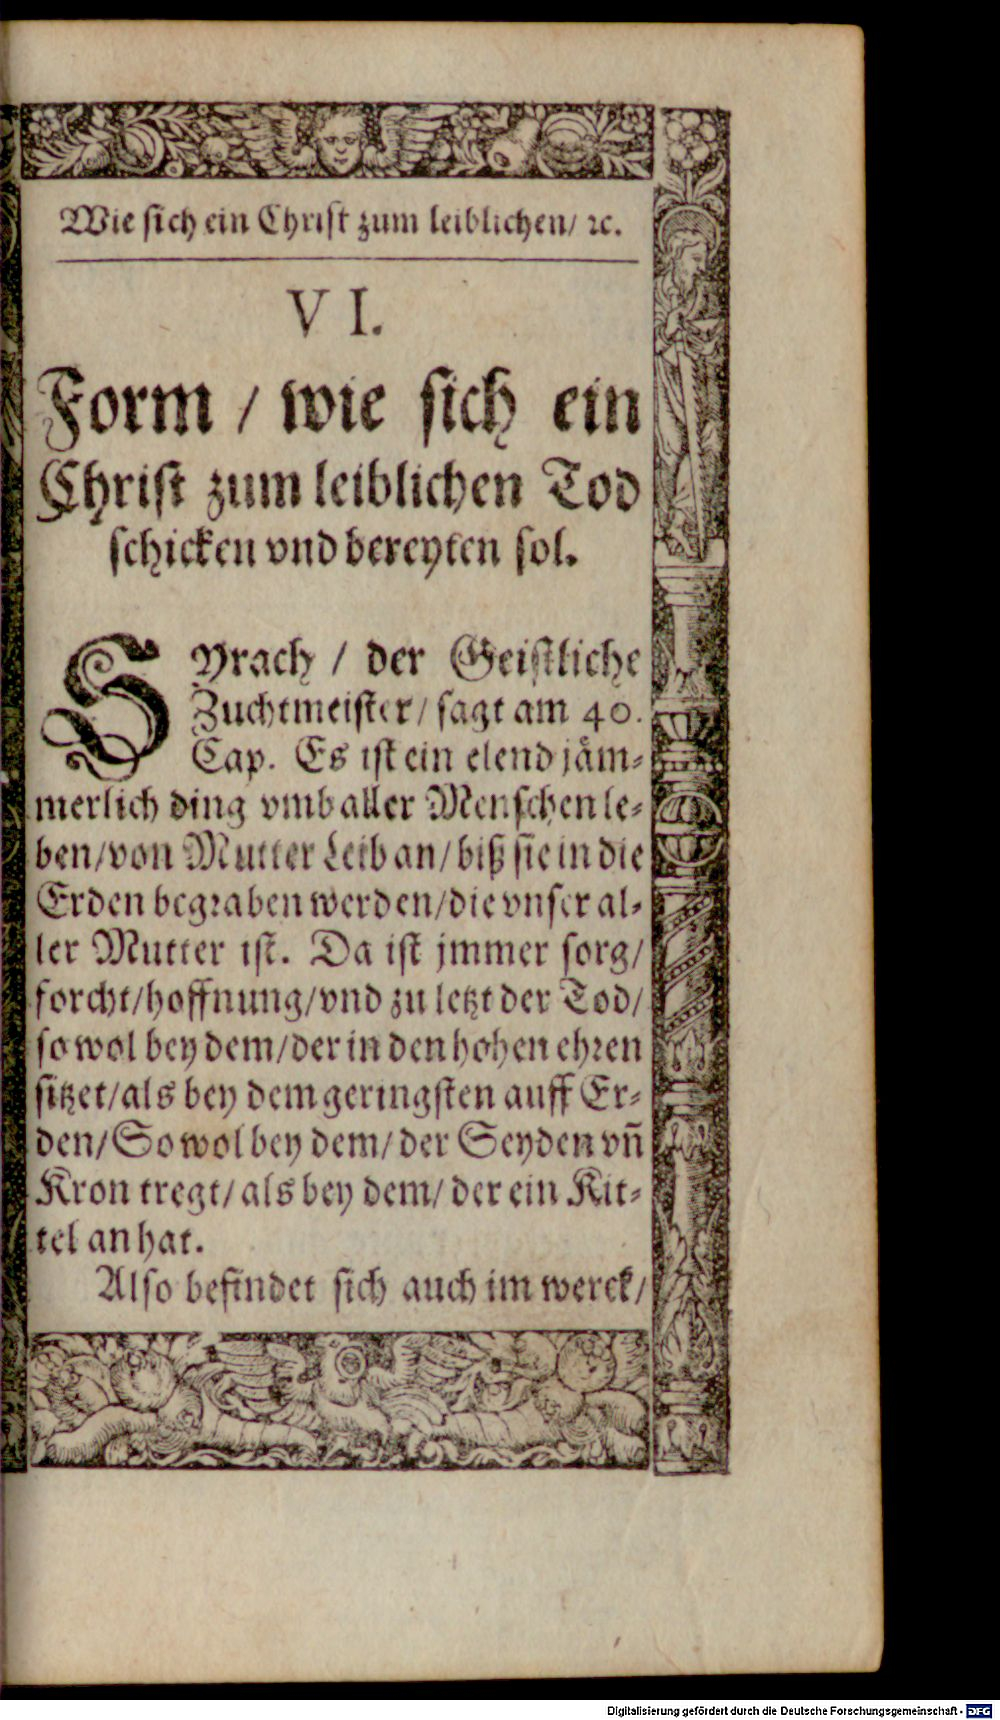 Wie sich ein Christ zum leiblichen/ ꝛc.
VI.
Form / wie sich ein
Christ zum leiblichen Tod
schicken vnd bereyten sol.
SYrach / der Geistliche
Zuchtmeister/ sagt am 40.
Cap. Es ist ein elend jäm⸗
merlich ding vmb aller Menschen le⸗
ben/von Mutter Leib an/ biß sie in die
Erden begraben werden/die vnser al⸗
ler Mutter ist. Da ist jmmer sorg/
forcht/hoffnung/vnd zu letzt der Tod/
so wol bey dem/der in den hohen ehren
sitzet/als bey dem geringsten auff Er⸗
den/ So wol bey dem/ der Seyden vñ
Kron tregt/ als bey dem/ der ein Kit⸗
tel an hat.
Also befindet sich auch im werck/
Digitalisierung gefördert durch die Deutsche Forschungsgemeinschaft - DFG